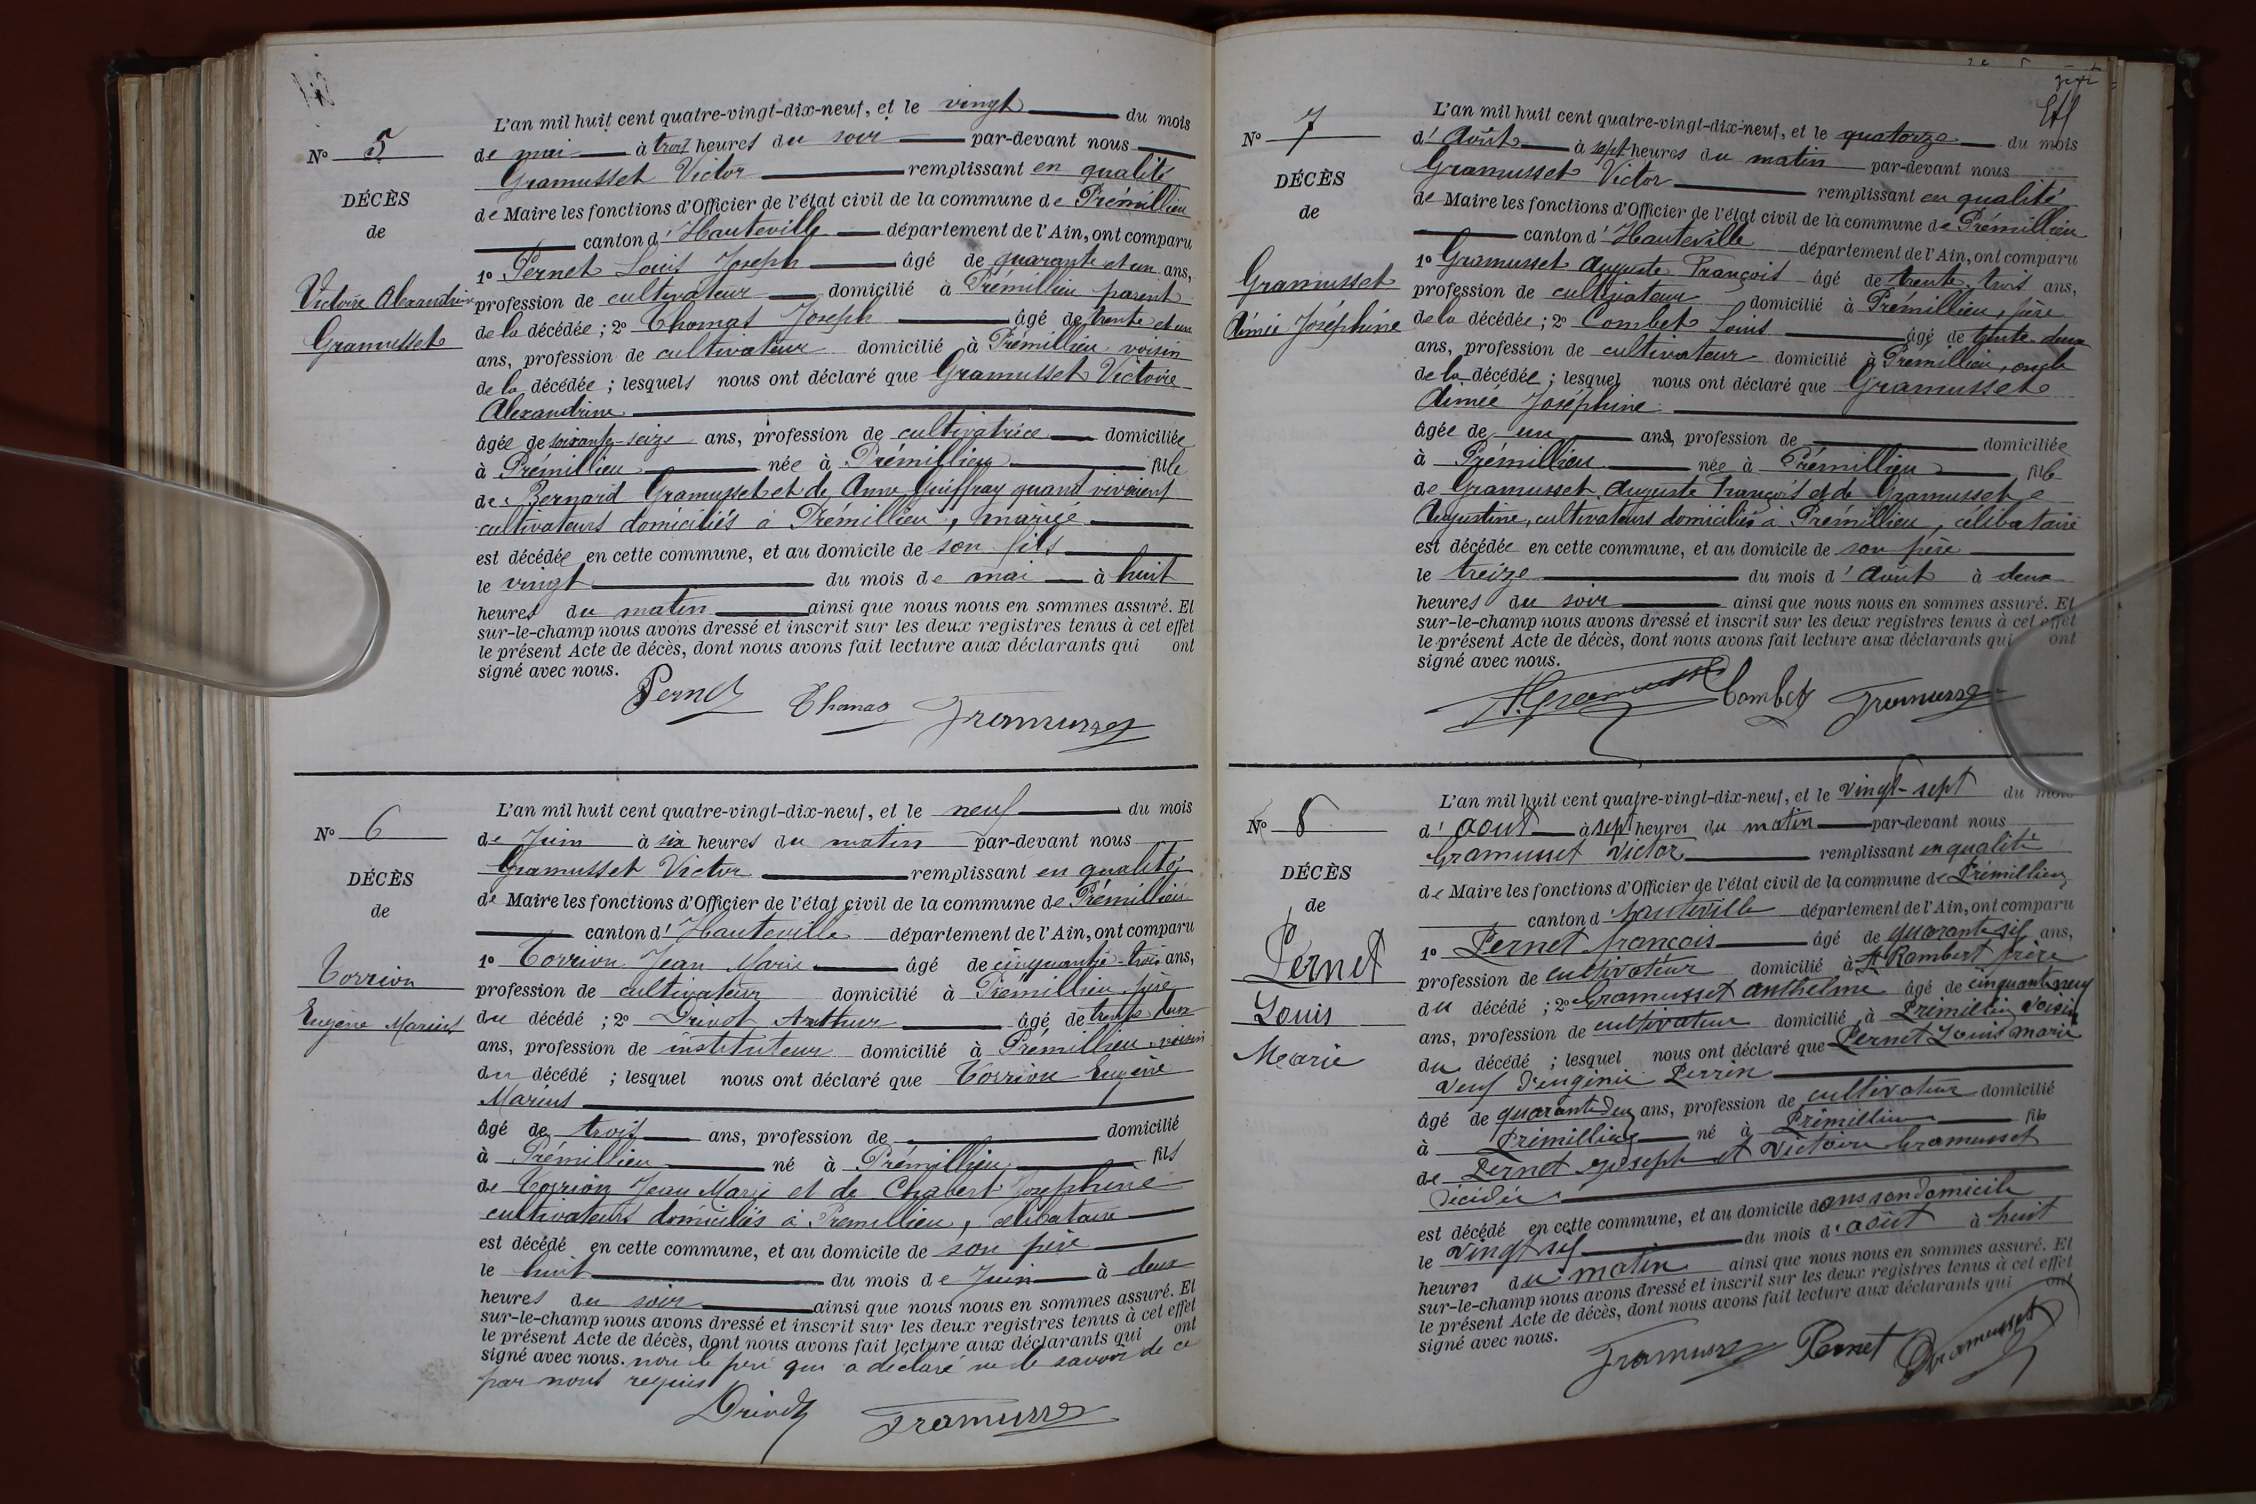 N° 5
DÉCÈS
de
Victoire Alexandrine
Gramusset
L'an mil huit cent quatre-vingt-dix-neuf, et le vingt du mois
de mai à trois heures du soir par-devant nous
Gramusset Victor remplissant en qualité
de Maire les fonctions d'Officier de l'état civil de la commune de Prémillieu
canton d'Hauteville département de l'Ain, ont comparu
1° Pernet Louis Joseph âgé de quarante et un ans,
profession de cultivateur domicilié à Prémillieu parent
de la décédée ; 2° Thomas Joseph âgé de trente et un
ans, profession de cultivateur domicilié à Prémillieu voisin
de la décédée ; lesquels nous ont déclaré que Gramusset Victoire
Alexandrine
âgée de soixante-seize ans, profession de cultivatrice domiciliée
à Prémillieu née à Prémillieu fille
de Bernard Gramusset et de Anne Guiffray quand vivaient
cultivateurs domiciliés à Prémillieu, mariée
est décédée en cette commune, et au domicile de son fils
le vingt du mois de mai à huit
heures du matin ainsi que nous nous en sommes assuré. Et
sur-le-champ nous avons dressé et inscrit sur les deux registres tenus à cet effet
le présent Acte de décès, dont nous avons fait lecture aux déclarants qui ont
signé avec nous.
Pernet Thomas Gramusset
N° 6
DÉCÈS
de
Torrion
Eugène Marius
L'an mil huit cent quatre-vingt-dix-neuf, et le neuf du mois
de Juin à six heures du matin par-devant nous
Gramusset Victor remplissant en qualité
de Maire les fonctions d'Officier de l'état civil de la commune de Prémillieu
canton d'Hauteville département de l'Ain, ont comparu
1° Torrion Jean Marie âgé de cinquante-trois ans,
profession de cultivateur domicilié à Prémillieu, père
du décédé ; 2° Drivot Arthur âgé de trente deux
ans, profession de instituteur domicilié à Prémillieu, voisin
du décédé ; lesquel nous ont déclaré que Torrion Eugène
Marius
âgé de trois ans, profession de domicilié
à Prémillieu né à Prémillieu fils
de Torrion Jean Marie et de Chabert Joséphine
cultivateurs domiciliés à Prémillieu, célibataire
est décédé en cette commune, et au domicile de son père
le huit du mois de Juin à deux
heures du soir ainsi que nous nous en sommes assuré. Et
sur-le-champ nous avons dressé et inscrit sur les deux registres tenus à cet effet
le présent Acte de décès, dont nous avons fait lecture aux déclarants qui ont
signé avec nous. non le père qui a déclaré ne le savoir de ce
par nous requis
Drivot Gramusset
N° 7
DÉCÈS
de
Gramusset
Aimée Joséphine
L'an mil huit cent quatre-vingt-dix-neuf, et le quatorze du mois
d'Août à sept heures du matin par-devant nous
Gramusset Victor remplissant en qualité
de Maire les fonctions d'Officier de l'état civil de la commune de Prémillieu
canton d'Hauteville département de l'Ain, ont comparu
1° Gramusset Auguste François âgé de trente-trois ans,
profession de cultivateur domicilié à Prémillieu, père
de la décédée ; 2° Combet Louis âgé de trente-deux
ans, profession de cultivateur domicilié à Prémillieu, oncle
de la décédée ; lesquel nous ont déclaré que Gramusset
Aimée Joséphine
âgée de un ans, profession de domiciliée
à Prémillieu née à Prémillieu fille
de Gramusset Auguste François et de Gramusset
Augustine, cultivateurs domiciliés à Prémillieu, célibataire
est décédée en cette commune, et au domicile de son père
le treize du mois d'Août à deux
heures du soir ainsi que nous nous en sommes assuré. Et
sur-le-champ nous avons dressé et inscrit sur les deux registres tenus à cet effet
le présent Acte de décès, dont nous avons fait lecture aux déclarants qui ont
signé avec nous.
Gramusset Combet Gramusset
N° 8
DÉCÈS
de
Pernet
Louis
Marie
L'an mil huit cent quatre-vingt-dix-neuf, et le vingt-sept du mois
d'aout à sept heures du matin par-devant nous
Gramusset Victor remplissant en qualité
de Maire les fonctions d'Officier de l'état civil de la commune de Prémillieu
canton d'hauteville département de l'Ain, ont comparu
1° Pernet françois âgé de quarante six ans,
profession de cultivateur domicilié à St Rambert frère
du décédé ; 2° Gramusset anthelme âgé de cinquante neuf
ans, profession de cultivateur domicilié à Prémillieu voisin
du décédé ; lesquel nous ont déclaré que Pernet Louis marie
veuf d'eugénie Perrin
âgé de quarante deux ans, profession de cultivateur domicilié
à Prémillieu né à Prémillieu fils
de Pernet joseph et Victoire Gramusset
décédés
est décédé en cette commune, et au domicile dans son domicile
le vingt six du mois d'août à huit
heures du matin ainsi que nous nous en sommes assuré. Et
sur-le-champ nous avons dressé et inscrit sur les deux registres tenus à cet effet
le présent Acte de décès, dont nous avons fait lecture aux déclarants qui ont
signé avec nous.
Gramusset Pernet Gramusset